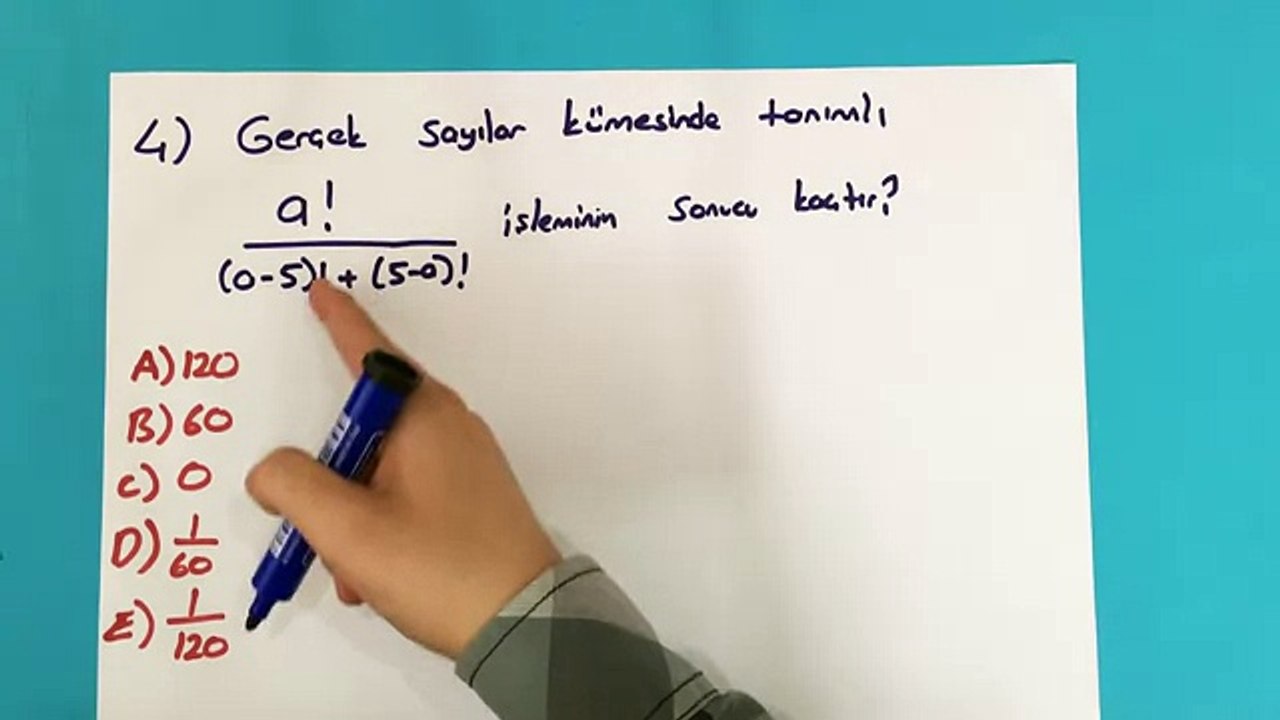 4) Gerçek sayılar kümesinde tanımlı
a!
işleminin sonucu kaçtır?
(a-5)! + (5-a)!
A) 120
B) 60
C) 0
D) 1/60
E) 1/120